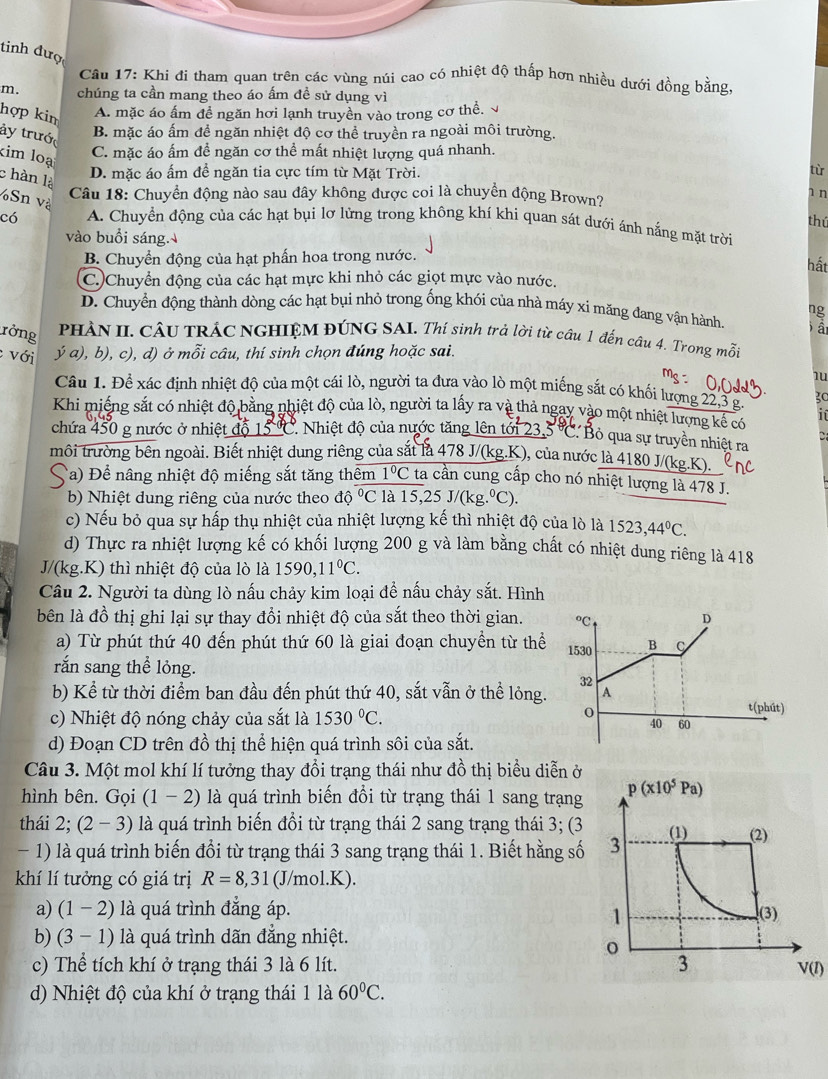 tinh đượ
m.
hợp kim
ảy trướ
kim loại
c hàn là
%Sn và
có
ường
với
Câu 17: Khi đi tham quan trên các vùng núi cao có nhiệt độ thấp hơn nhiều dưới đồng bằng,
chúng ta cần mang theo áo ấm để sử dụng vì
A. mặc áo ấm để ngăn hơi lạnh truyền vào trong cơ thể.
B. mặc áo ấm để ngăn nhiệt độ cơ thể truyền ra ngoài môi trường.
C. mặc áo ấm để ngăn cơ thể mất nhiệt lượng quá nhanh.
D. mặc áo ấm để ngăn tia cực tím từ Mặt Trời.
Câu 18: Chuyển động nào sau đây không được coi là chuyển động Brown?
A. Chuyển động của các hạt bụi lơ lửng trong không khí khi quan sát dưới ánh nắng mặt trời
vào buổi sáng.
B. Chuyển động của hạt phấn hoa trong nước.
C. Chuyển động của các hạt mực khi nhỏ các giọt mực vào nước.
D. Chuyển động thành dòng các hạt bụi nhỏ trong ống khói của nhà máy xi măng đang vận hành.
PHẦN II. CÂU TRẮC NGHIỆM ĐÚNG SAI. Thí sinh trả lời từ câu 1 đến câu 4. Trong mỗi
ý a), b), c), d) ở mỗi câu, thí sinh chọn đúng hoặc sai.
m₃ = 0,0223
Câu 1. Để xác định nhiệt độ của một cái lò, người ta đưa vào lò một miếng sắt có khối lượng 22,3 g.
Khi miếng sắt có nhiệt độ bằng nhiệt độ của lò, người ta lấy ra và thả ngay vào một nhiệt lượng kế có
0,45 t₁ 288 t₂ 296,5
chứa 450 g nước ở nhiệt độ 15 ⁰C. Nhiệt độ của nước tăng lên tới 23,5 ⁰C. Bỏ qua sự truyền nhiệt ra
môi trường bên ngoài. Biết nhiệt dung riêng của sắt là 478 J/(kg.K), của nước là 4180 J/(kg.K).
S a) Để nâng nhiệt độ miếng sắt tăng thêm 1⁰C ta cần cung cấp cho nó nhiệt lượng là 478 J.
b) Nhiệt dung riêng của nước theo độ ⁰C là 15,25 J/(kg.⁰C).
c) Nếu bỏ qua sự hấp thụ nhiệt của nhiệt lượng kế thì nhiệt độ của lò là 1523,44⁰C.
d) Thực ra nhiệt lượng kế có khối lượng 200 g và làm bằng chất có nhiệt dung riêng là 418
J/(kg.K) thì nhiệt độ của lò là 1590,11⁰C.
Câu 2. Người ta dùng lò nấu chảy kim loại để nấu chảy sắt. Hình
bên là đồ thị ghi lại sự thay đổi nhiệt độ của sắt theo thời gian.
a) Từ phút thứ 40 đến phút thứ 60 là giai đoạn chuyển từ thể
rắn sang thể lỏng.
b) Kể từ thời điểm ban đầu đến phút thứ 40, sắt vẫn ở thể lỏng.
c) Nhiệt độ nóng chảy của sắt là 1530 ⁰C.
d) Đoạn CD trên đồ thị thể hiện quá trình sôi của sắt.
⁰C
D
1530
B C
32
A
0
40 60
t(phút)
Câu 3. Một mol khí lí tưởng thay đổi trạng thái như đồ thị biểu diễn ở
hình bên. Gọi (1 − 2) là quá trình biến đổi từ trạng thái 1 sang trạng
thái 2; (2 − 3) là quá trình biến đổi từ trạng thái 2 sang trạng thái 3; (3
− 1) là quá trình biến đổi từ trạng thái 3 sang trạng thái 1. Biết hằng số
khí lí tưởng có giá trị R = 8,31 (J/mol.K).
a) (1 − 2) là quá trình đẳng áp.
b) (3 − 1) là quá trình dãn đẳng nhiệt.
c) Thể tích khí ở trạng thái 3 là 6 lít.
d) Nhiệt độ của khí ở trạng thái 1 là 60⁰C.
p (x10⁵ Pa)
3
(1) (2)
1
(3)
0
3
V(l)
từ
thú
hất
ng